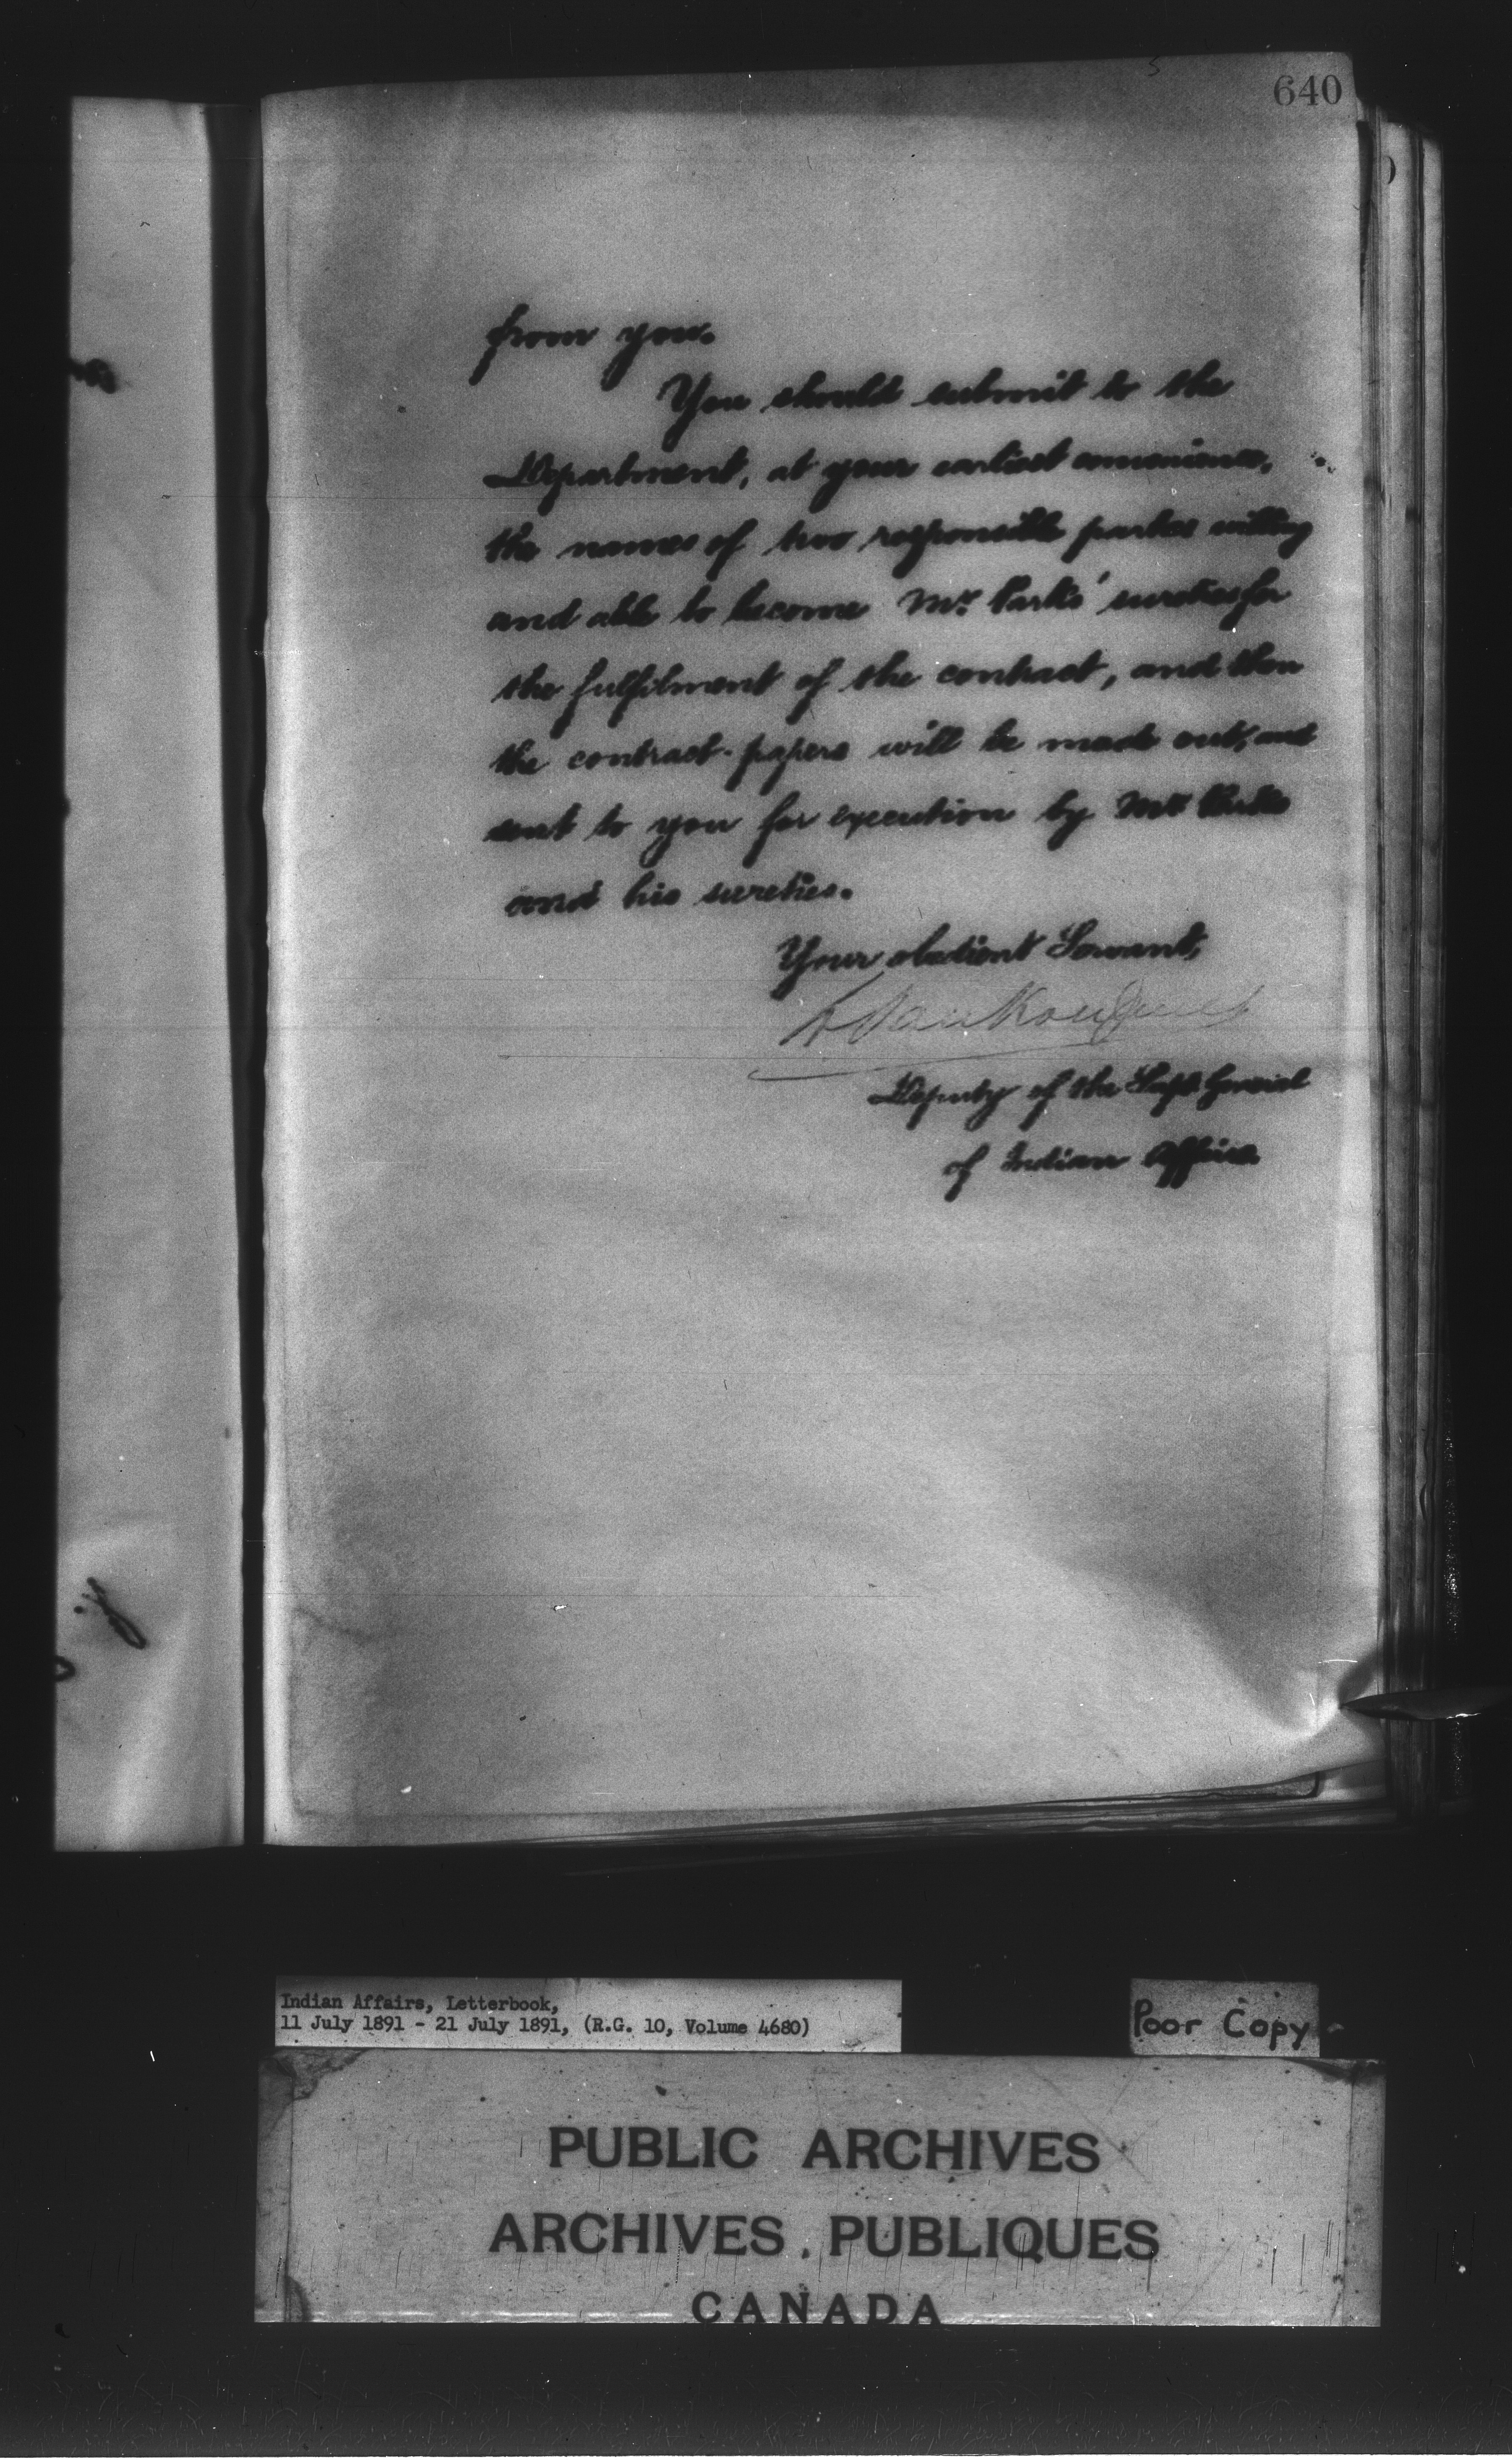 640
from you.
You should submit to the
Department, at your earliest convenience,
the names of two responsible parties willing
and able to become Mr. Parks' sureties for
the fulfilment of the contract, and then
the contract-papers will be made out, and
sent to you for execution by Mr. Parks
and his sureties.
Your obedient Servant,
L. VanKoughnet
Deputy of the Supt. General
of Indian Affairs.
Indian Affairs, Letterbook,
11 July 1891 - 21 July 1891, (R.G. 10, Volume 4680)
Poor Copy
PUBLIC ARCHIVES
ARCHIVES PUBLIQUES
CANADA